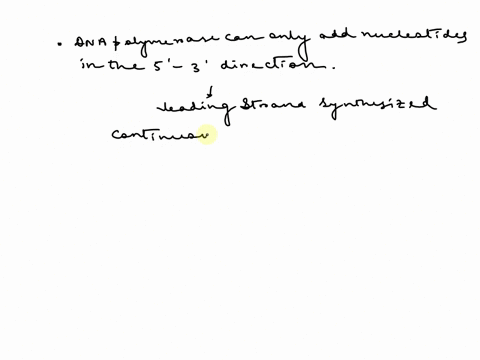 • DNA polymerase can only add nucleotides
in the 5' - 3' direction.
↓
leading strand synthesized
continuou